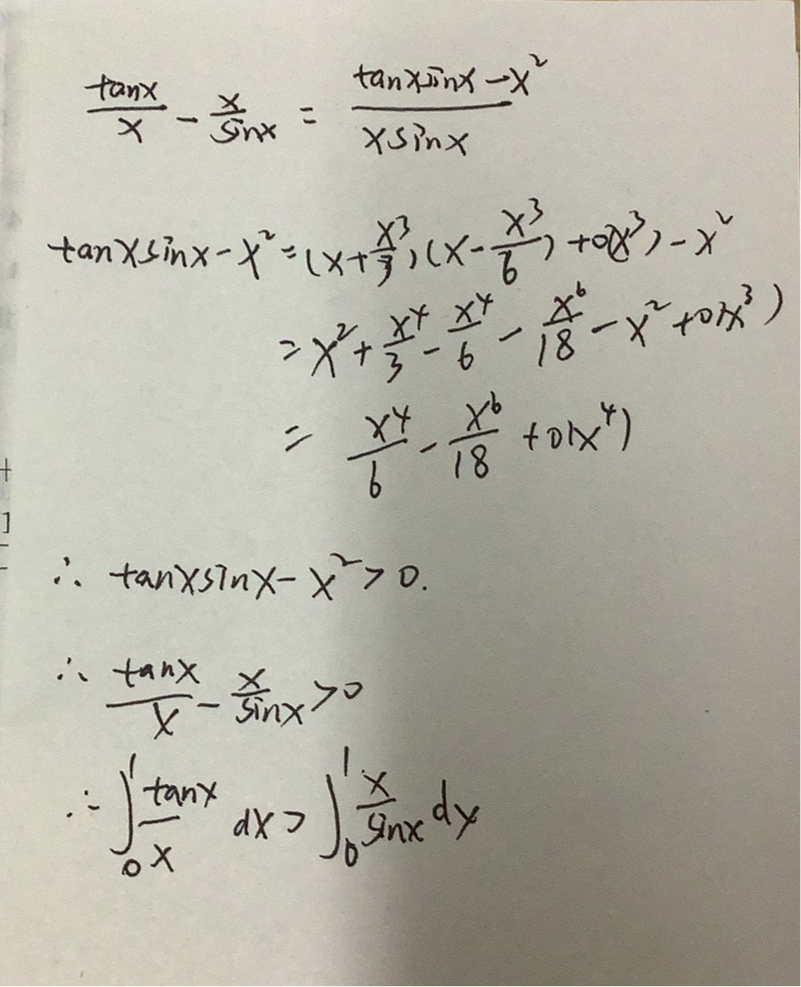 tanx/x - x/sinx = (tanxsinx - x²)/(xsinx)
tanxsinx - x² = (x + x³/3)(x - x³/6) + o(x³) - x²
= x² + x⁴/3 - x⁴/6 - x⁶/18 - x² + o(x³)
= x⁴/6 - x⁶/18 + o(x⁴)
∴ tanxsinx - x² > 0.
∴ tanx/x - x/sinx > 0
∴ ∫₀¹ tanx/x dx > ∫₀¹ x/sinx dx